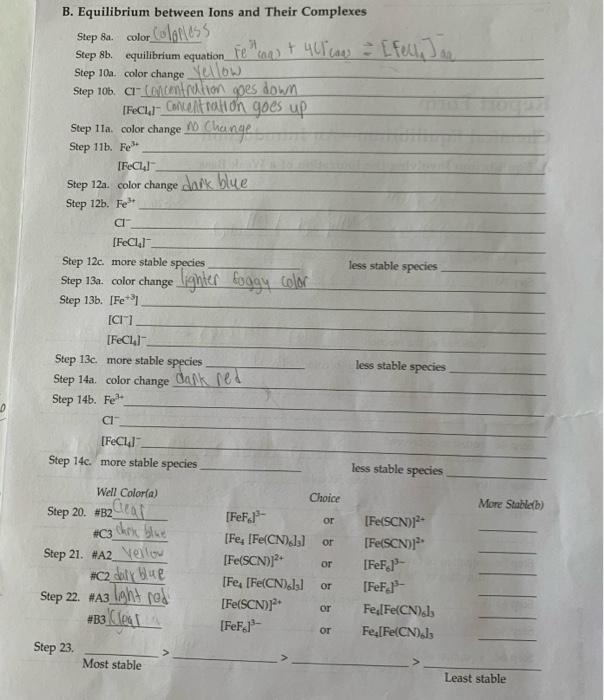 B. Equilibrium between Ions and Their Complexes
Step 8a. color Colorless
Step 8b. equilibrium equation Fe³⁺(aq) + 4Cl⁻(aq) ⇌ [FeCl₄]⁻aq
Step 10a. color change yellow
Step 10b. Cl⁻ Concentration goes down
[FeCl₄]⁻ Concentration goes up
Step 11a. color change no Change
Step 11b. Fe³⁺
[FeCl₄]⁻
Step 12a. color change dark blue
Step 12b. Fe³⁺
Cl⁻
[FeCl₄]⁻
Step 12c. more stable species less stable species
Step 13a. color change lighter foggy color
Step 13b. [Fe⁺³]
[Cl⁻]
[FeCl₄]⁻
Step 13c. more stable species less stable species
Step 14a. color change dark red
Step 14b. Fe³⁺
Cl⁻
[FeCl₄]⁻
Step 14c. more stable species less stable species
Well Color(a) Choice More Stable(b)
Step 20. #B2 Clear [FeF₆]³⁻ or [Fe(SCN)]²⁺
#C3 dark blue [Fe₄ [Fe(CN)₆]₃] or [Fe(SCN)]²⁺
Step 21. #A2 Yellow [Fe(SCN)]²⁺ or [FeF₆]³⁻
#C2 dark blue [Fe₄ [Fe(CN)₆]₃] or [FeF₆]³⁻
Step 22. #A3 light red [Fe(SCN)]²⁺ or Fe₄[Fe(CN)₆]₃
#B3 Clear [FeF₆]³⁻ or Fe₄[Fe(CN)₆]₃
Step 23. > > >
Most stable Least stable